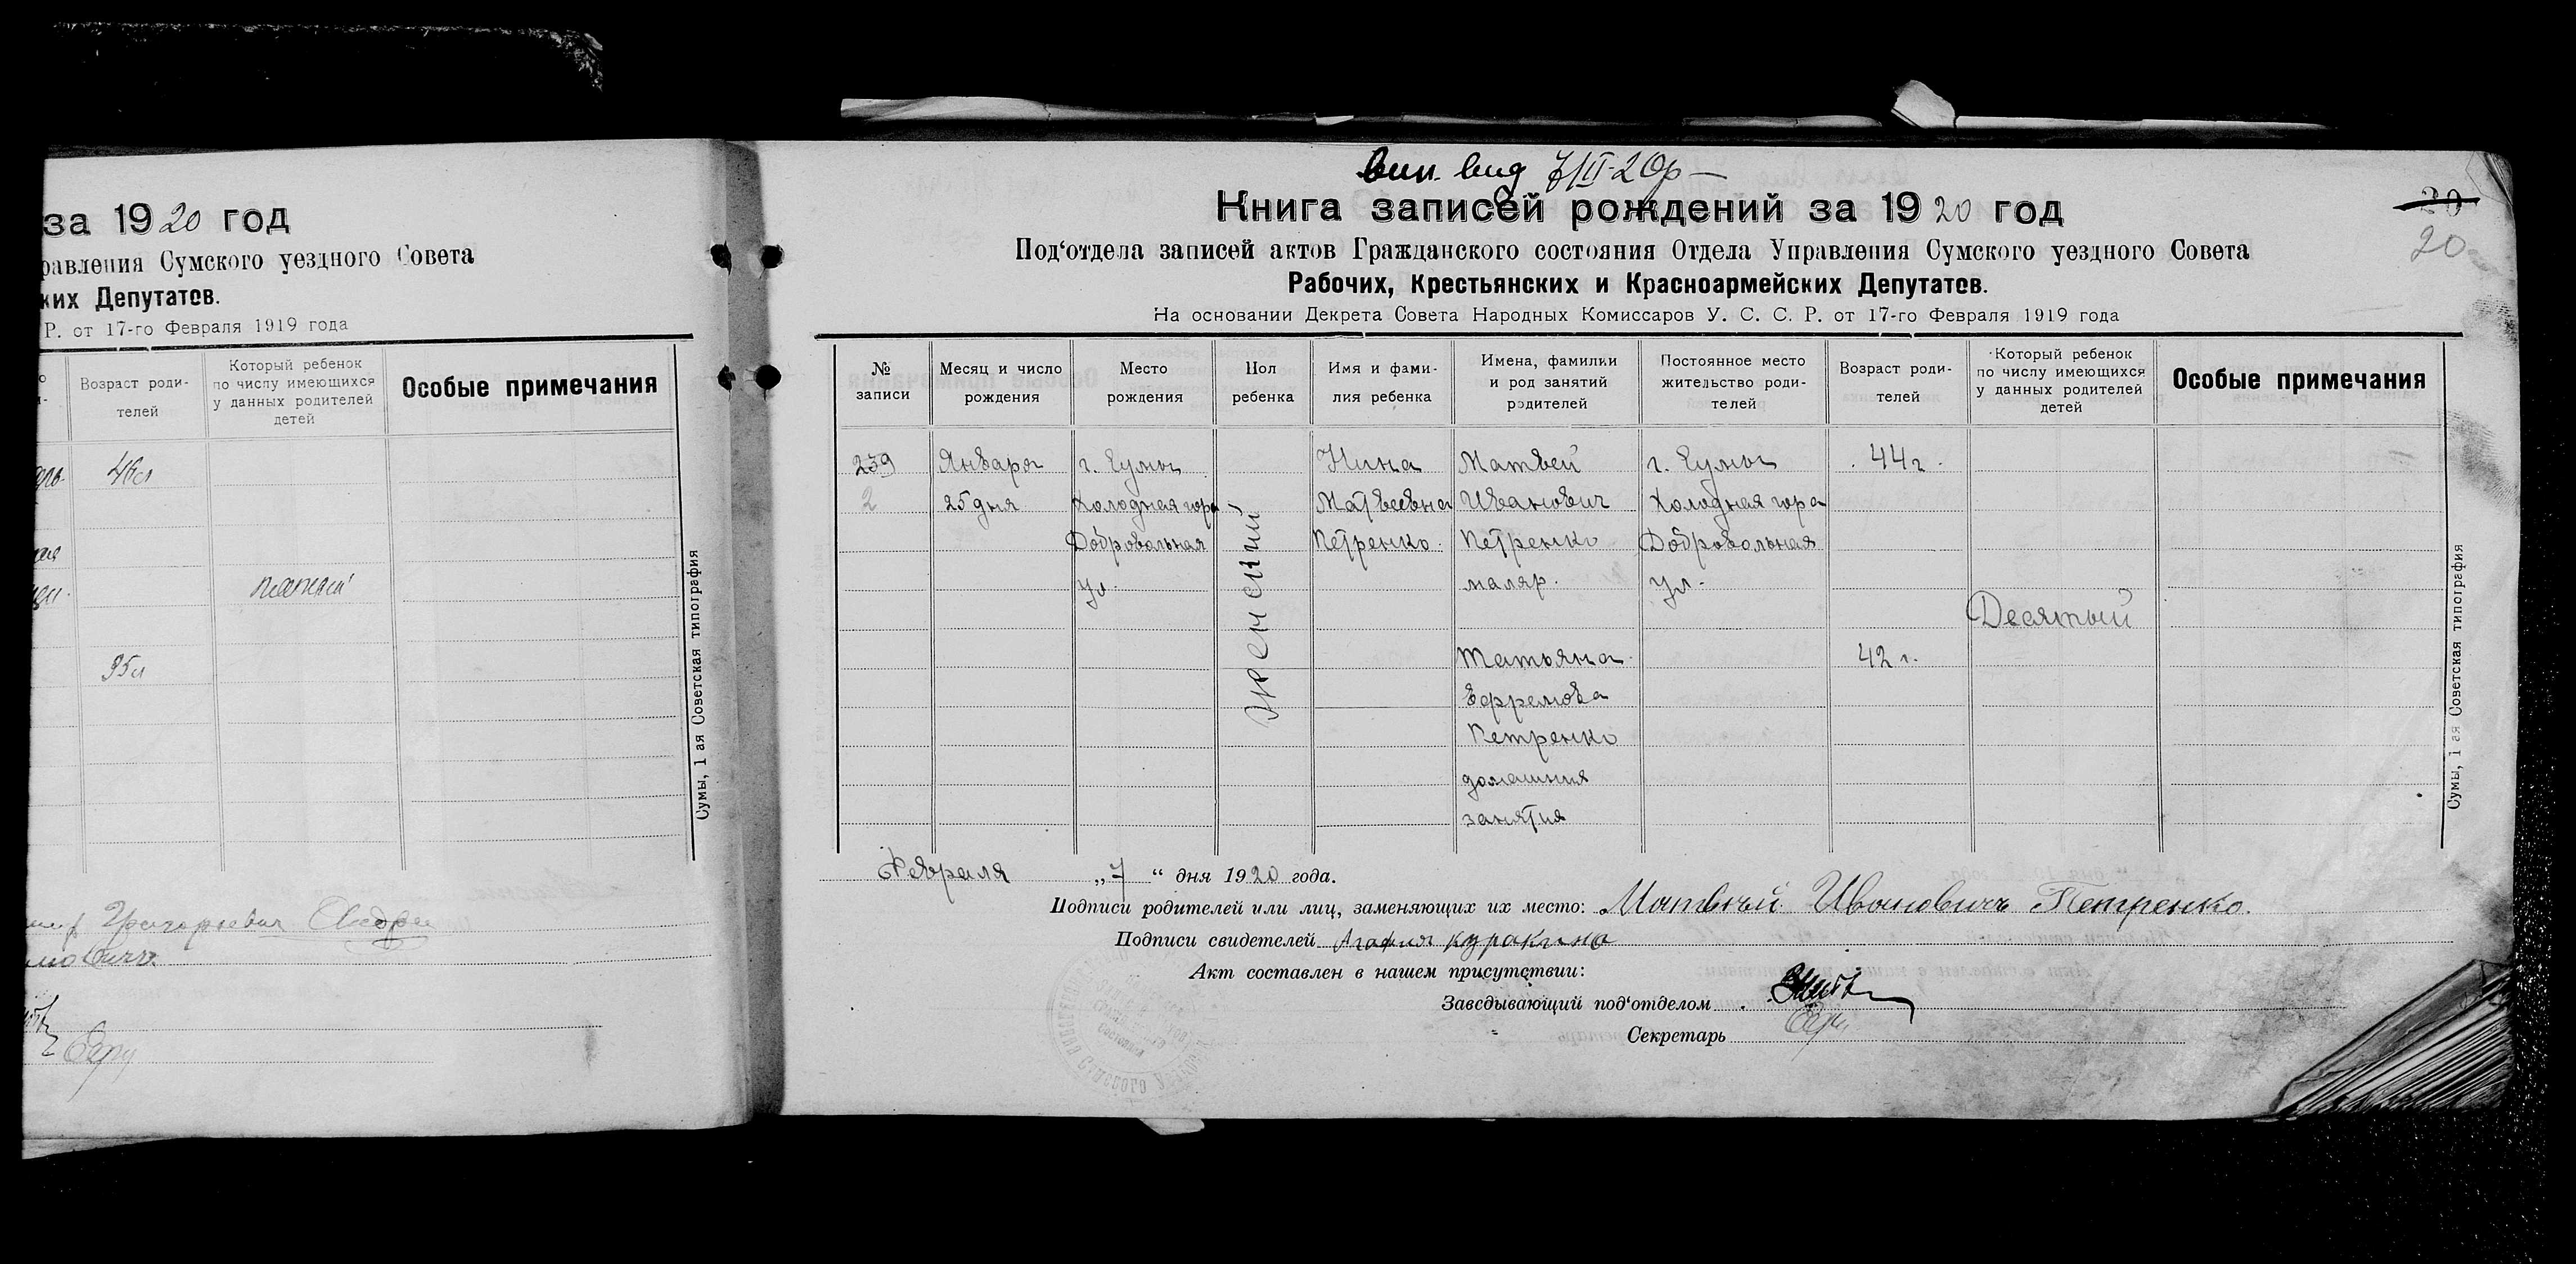 за 1920 год
равления Сумского уездного Совета
ких Депутатов.
Р. от 17-го Февраля 1919 года
Возраст роди-
телей
Который ребенок
по числу имеющихся
у данных родителей
детей
Особые примечания
35л
Сумы, 1 ая Советская типография
Григорьевич
20
20
Книга записей рождений за 1920 год
Под‘отдела записей актов Гражданского состояния Отдела Управления Сумского уездного Совета
Рабочих, Крестьянских и Красноармейских Депутатов.
На основании Декрета Совета Народных Комиссаров У. С. С. Р. от 17-го Февраля 1919 года
№
записи
Месяц и число
рождения
Место
рождения
Пол
ребенка
Имя и фами-
лия ребенка
Имена, фамилии
и род занятий
родителей
Постоянное место
жительство роди-
телей
Возраст роди-
телей
Который ребенок
по числу имеющихся
у данных родителей
детей
Особые примечания
239
2
Января
25 дня
г. Сумы
Холодная гора
Добровольная
ул.
женский
Нина
Матвеевна
Петренко
Матвей
Иванович
Петренко
маляр.
Татьяна
Ефремова
Петренко
домашния
занятия
г. Сумы
Холодная гора
Добровольная
ул.
44 г.
42 г.
Десятый
Сумы, 1 ая Советская типография
Февраля „7“ дня 1920 года.
Подписи родителей или лиц, заменяющих их место: Матвѣй Ивановичъ Петренко.
Подписи свидетелей Агафия Куракина
Акт составлен в нашем присутствии:
Заведывающий под‘отделом
Секретарь